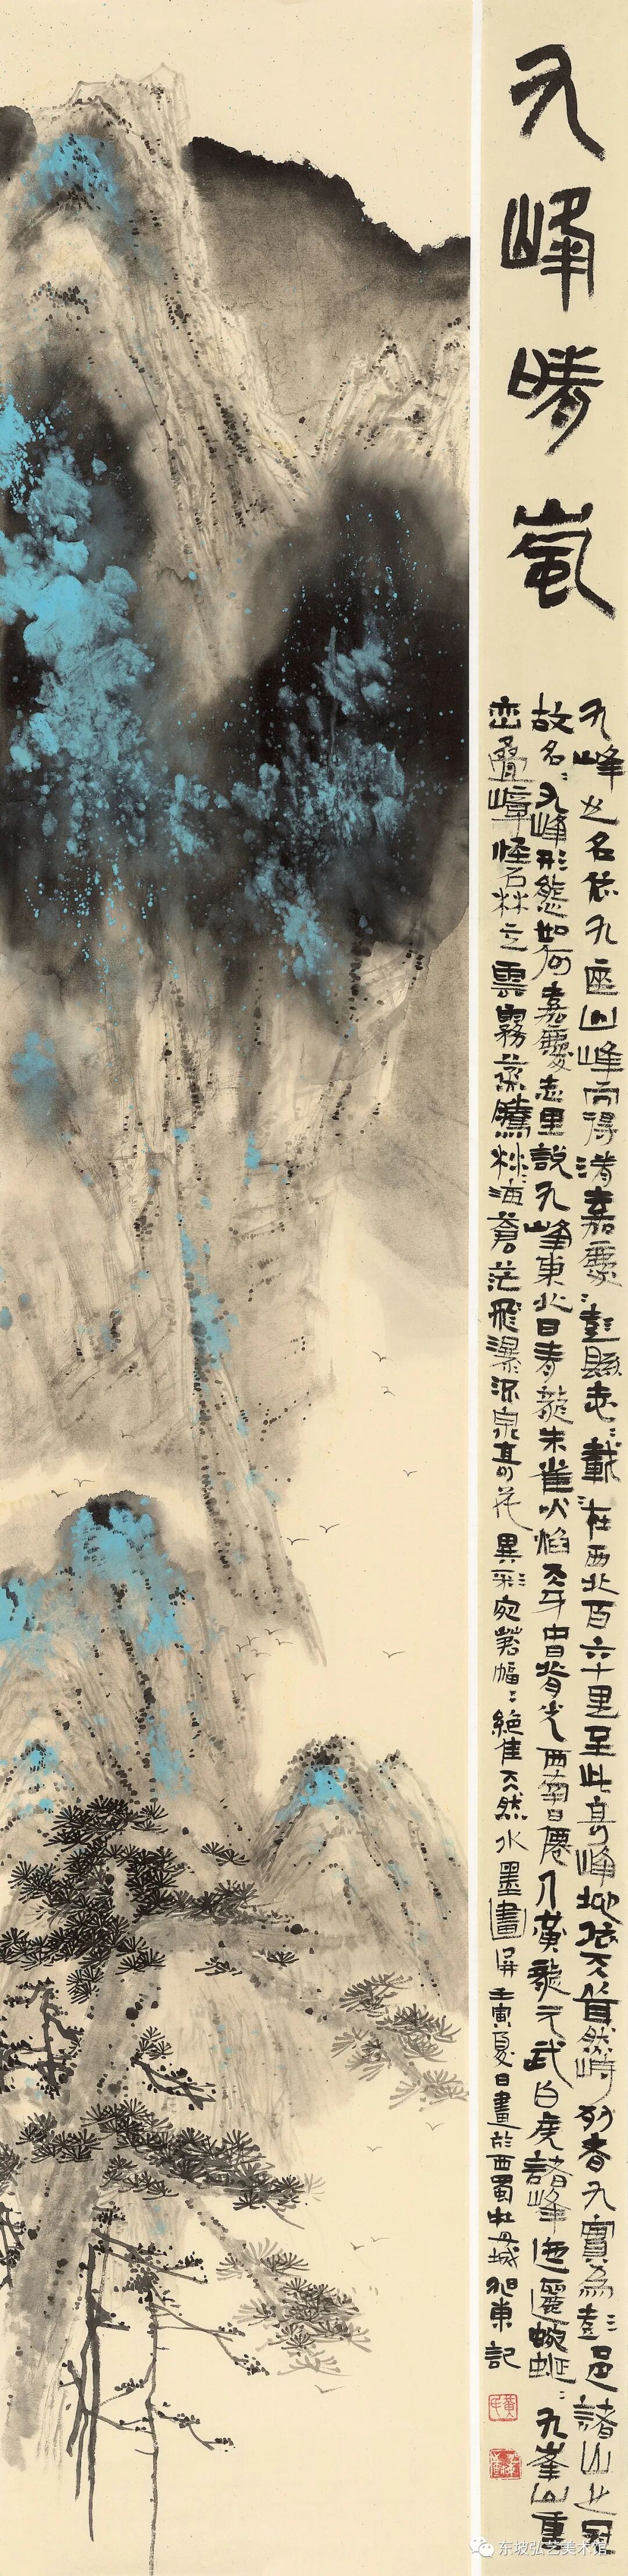 九峰晴嵐
九峰之名依九座山峰而得清嘉慶彭縣志載在西北百六十里至此高峰地依天首然峙列者九實為彭邑諸山之冠
故名九峰形態如何嘉慶志里說九峰東北曰青龍朱雀火焰天牙曾背光西南曰僊人黃龍元武白虎諸峰迤邐蜿蜒九峯山重
巒疊嶂怪石林立雲霧蒸騰林海蒼茫飛瀑流泉奇花異彩宛若幅絕佳天然水墨畫屏壬寅夏日畫於西蜀牡丹城旭東記
东坡弘艺美术馆